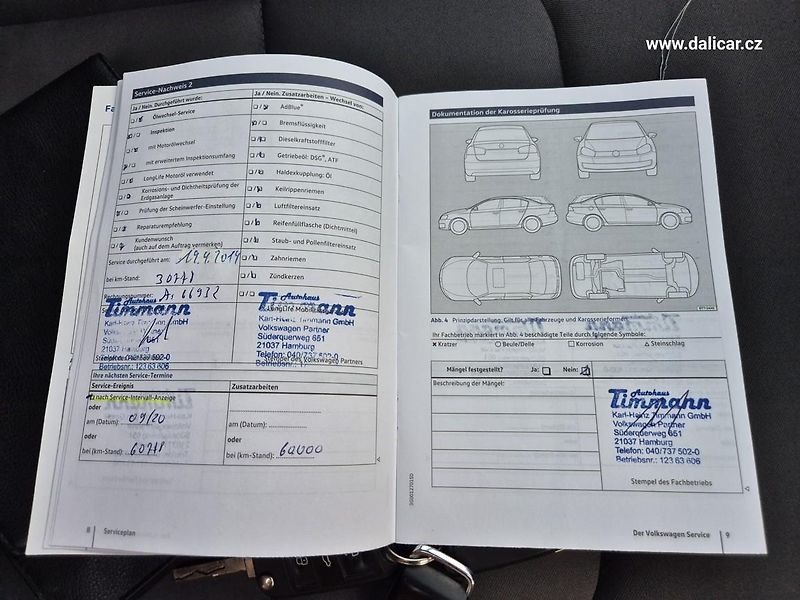 www.dalicar.cz
Service-Nachweis 2
Ja / Nein. Durchgeführt wurde:
Ölwechsel-Service
Inspektion
mit Motorölwechsel
mit erweitertem Inspektionsumfang
LongLife Motoröl verwendet
Korrosions- und Dichtheitsprüfung der
Erdgasanlage
Prüfung der Scheinwerfer-Einstellung
Reparaturempfehlung
Kundenwunsch
(auch auf dem Auftrag vermerken)
Service durchgeführt am:
bei km-Stand: 30771
Rechnungsnummer:
Autohaus
Timmann
Karl-Heinz Timmann GmbH
Volkswagen
Süderquerweg
21037 Hamburg
Betriebsnr.: 123 63 606
Ja / Nein. Zusatzarbeiten – Wechsel von:
AdBlue®
Bremsflüssigkeit
Dieselkraftstofffilter
Getriebeöl: DSG®, ATF
Haldexkupplung: Öl
Keilrippenriemen
Luftfiltereinsatz
Reifenfüllflasche (Dichtmittel)
Staub- und Pollenfiltereinsatz
Zahnriemen
Zündkerzen
Autohaus
Timmann
Karl-Heinz Timmann GmbH
Volkswagen Partner
Süderquerweg 651
21037 Hamburg
Telefon: 040/737 502-0
Stempel des Volkswagen Partners
Ihre nächsten Service-Termine
Service-Ereignis
Zusatzarbeiten
nach Service-Intervall-Anzeige
oder
am (Datum): 09/20
am (Datum):
oder
oder
bei (km-Stand): 60771
bei (km-Stand): 60000
8
Serviceplan
Dokumentation der Karosserieprüfung
Abb. 4 Prinzipdarstellung. Gilt für alle Fahrzeuge und Karosserieformen.
Ihr Fachbetrieb markiert in Abb. 4 beschädigte Teile durch folgende Symbole:
Kratzer
Beule/Delle
Korrosion
Steinschlag
Mängel festgestellt?
Ja:
Nein:
Beschreibung der Mängel:
Autohaus
Timmann
Karl-Heinz Timmann GmbH
Volkswagen Partner
Süderquerweg 651
21037 Hamburg
Telefon: 040/737 502-0
Betriebsnr.: 123 63 606
Stempel des Fachbetriebs
Der Volkswagen Service
9